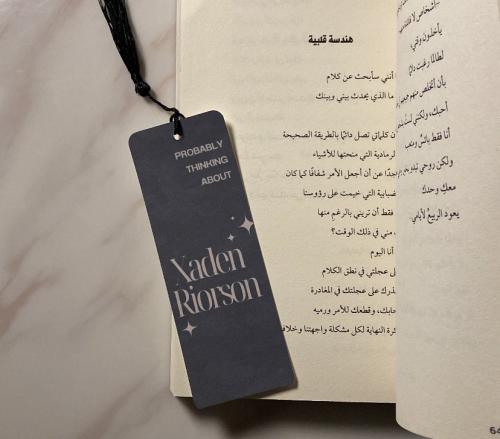 PROBABLY
THINKING
ABOUT
Xaden
Riorson
هندسة قلبية
أنني سأبحث عن كلام
ما الذي يحدث بيني وبينك
كلماتي تصل دائما بالطريقة الصحيحة
الرمادية التي منحتها للأشياء
عن أن أجعل الأمر شفافًا كما كان
الضبابية التي خيمت على رؤوسنا
فقط أن تريني بالرغم منها
مني في ذلك الوقت؟
أنا اليوم
عجلتي في نطق الكلام
على عجلتك في المغادرة
وقطعك للأمر ورميه
النهاية لكل مشكلة واجهتنا وخلاف
يأخذون وقتي
لطالما رغبت
بأن أتخلص منهم
أحبك، ولكني
أنا فقط
ولكن روحي
معكِ وحدك
يعود الربيع لأيامي.
64